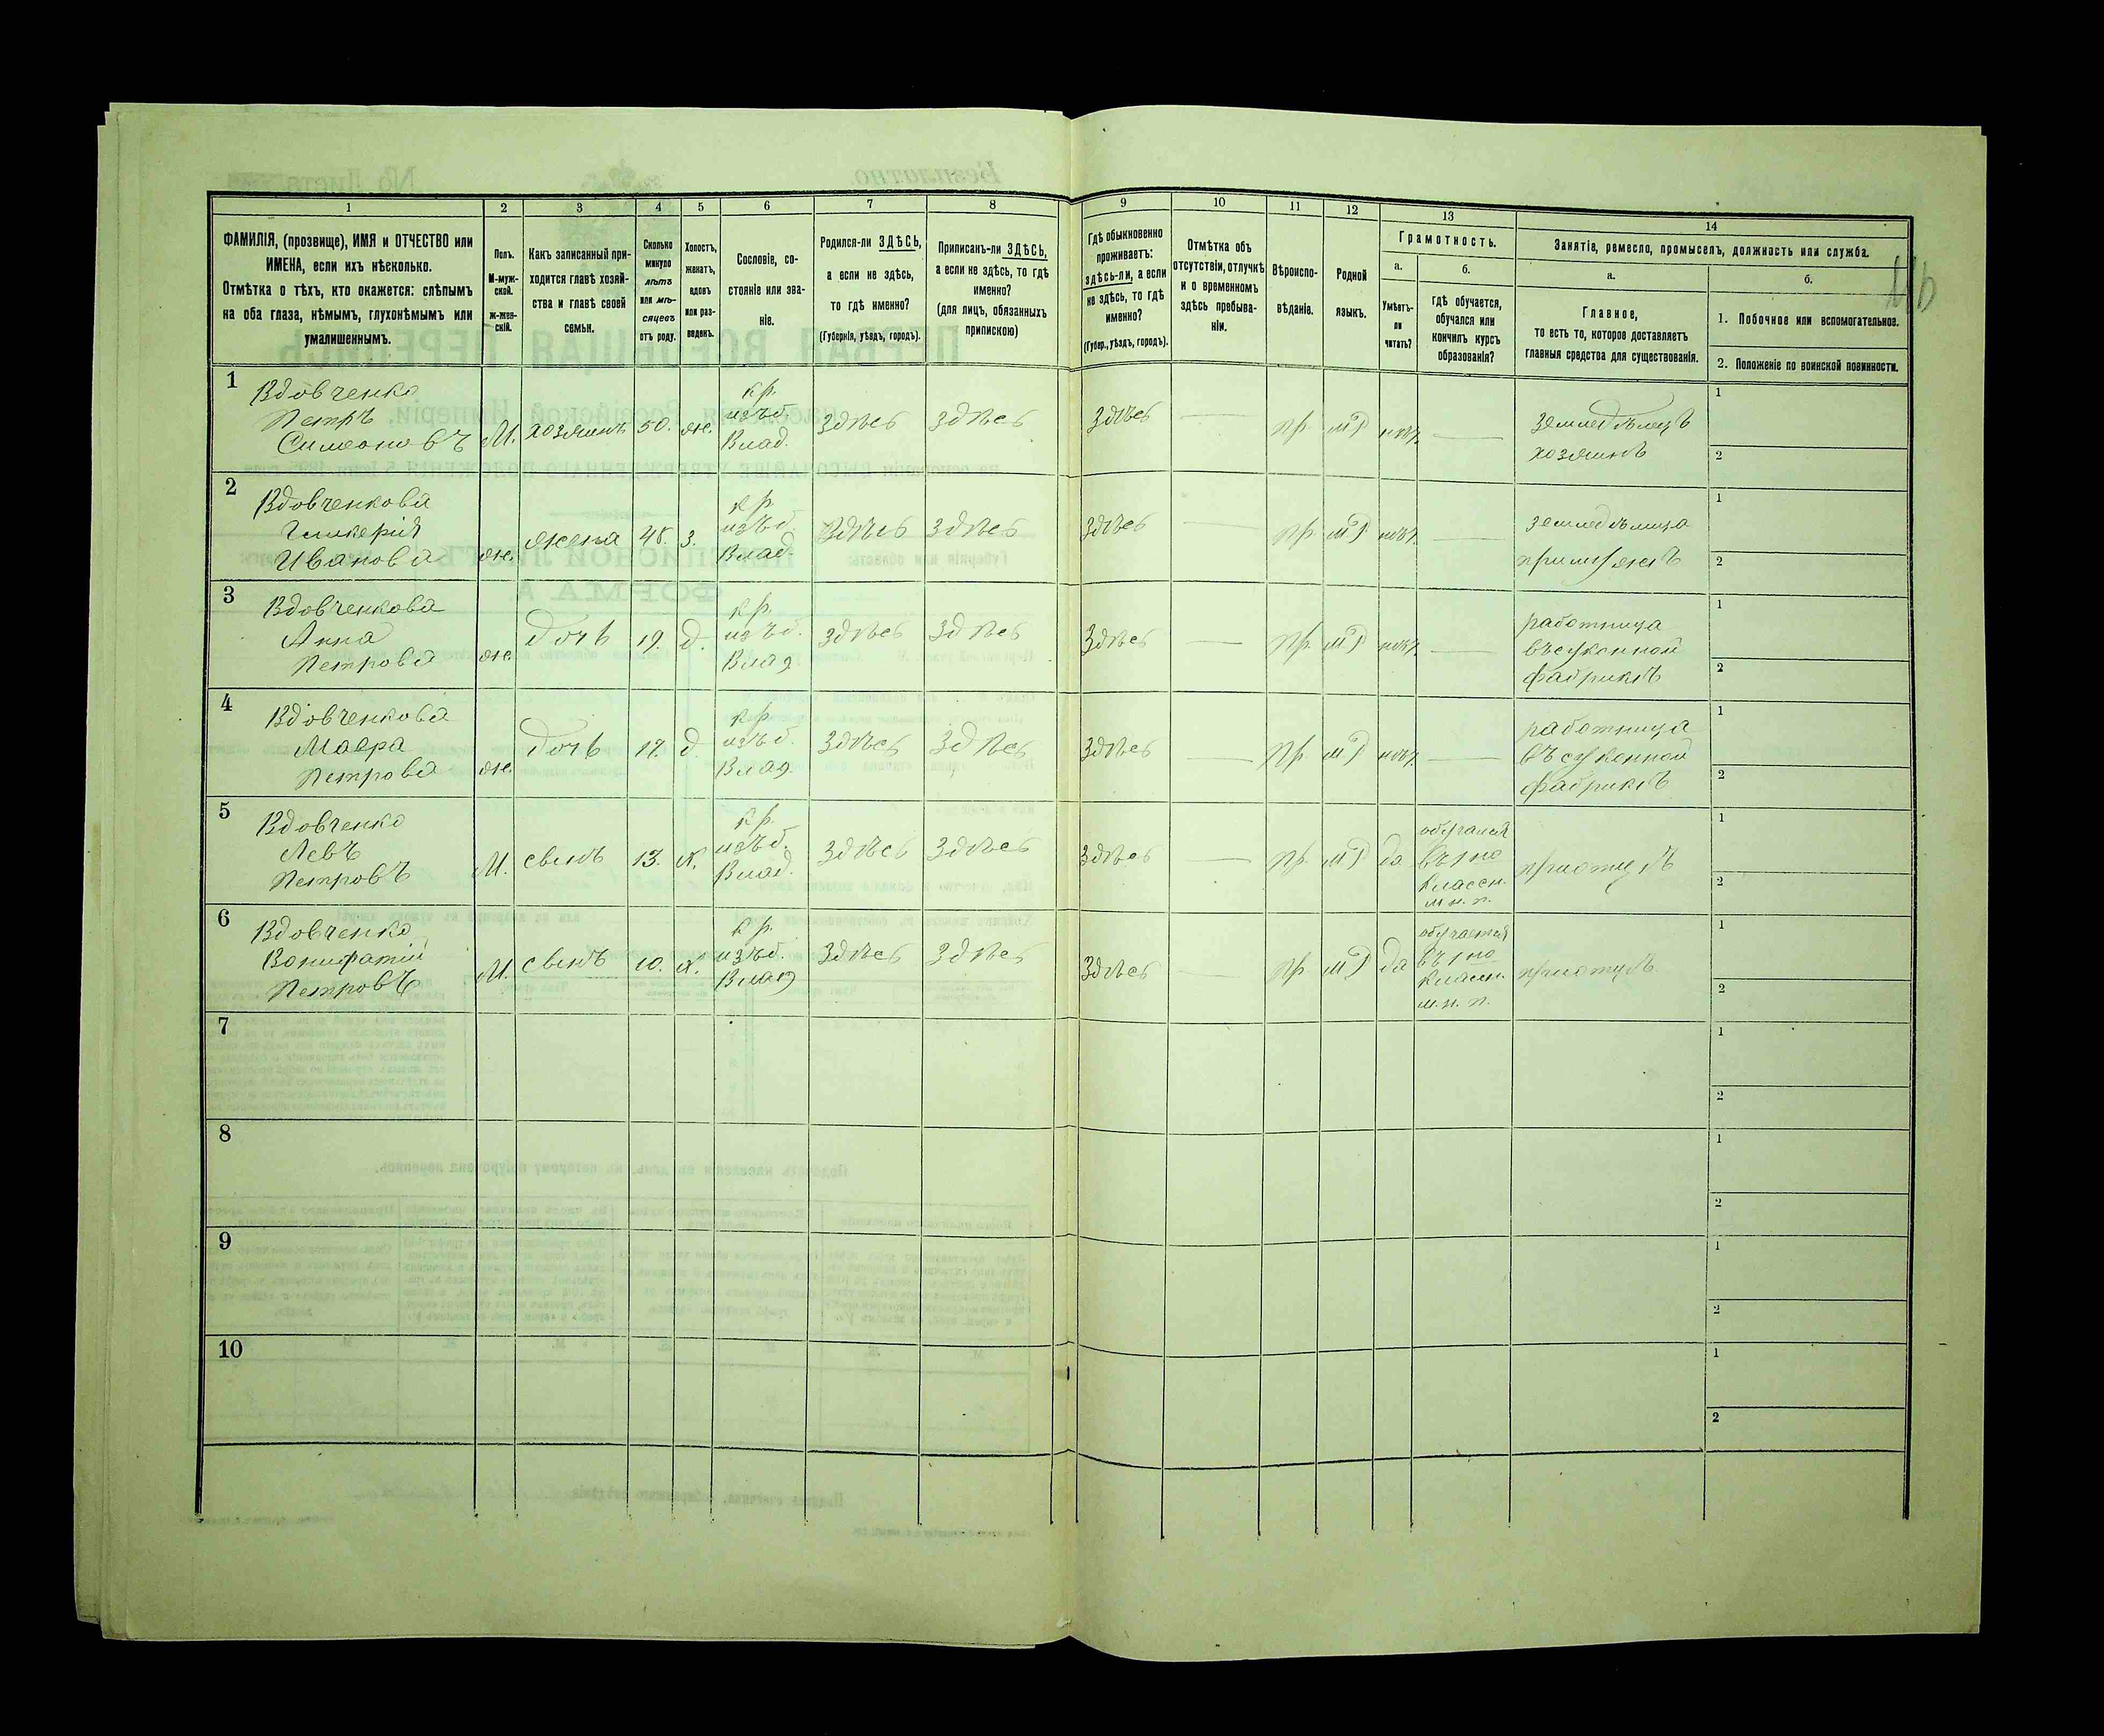 1 2 3 4 5 6 7 8 9 10 11 12 13 14
ФАМИЛІЯ, (прозвище), ИМЯ и ОТЧЕСТВО или
ИМЕНА, если ихъ нѣсколько.
Отмѣтка о тѣхъ, кто окажется: слѣпымъ
на оба глаза, нѣмымъ, глухонѣмымъ или
умалишеннымъ.
Полъ.
М-муж-
ской.
ж-жен-
скій.
Какъ записанный при-
ходится главѣ хозяй-
ства и главѣ своей
семьи.
Сколько
минуло
лѣтъ
или мѣ-
сяцевъ
отъ роду.
Холостъ,
женатъ,
вдовъ
или раз-
веденъ.
Сословіе, со-
стояніе или зва-
ніе.
Родился-ли ЗДѢСЬ,
а если не здѣсь,
то гдѣ именно?
(Губернія, уѣздъ, городъ).
Приписанъ-ли ЗДѢСЬ,
а если не здѣсь, то гдѣ
именно?
(для лицъ, обязанныхъ
припискою)
Гдѣ обыкновенно
проживаетъ:
здѣсь-ли, а если
не здѣсь, то гдѣ
именно?
(Губер., уѣздъ, городъ).
Отмѣтка объ
отсутствіи, отлучкѣ
и о временномъ
здѣсь пребыва-
ніи.
Вѣроиспо-
вѣданіе.
Родной
языкъ.
Грамотность.
а.
Умѣетъ-
ли
читать?
б.
гдѣ обучается,
обучался или
кончилъ курсъ
образованія?
Занятіе, ремесло, промыселъ, должность или служба.
а.
Главное,
то есть то, которое доставляетъ
главныя средства для существованія.
б.
1. Побочное или вспомогательное.
2. Положеніе по воинской повинности.
1
Вдовченко
Петръ
Симеоновъ
М.
хозяинъ
50.
ж.
кр.
изъ б.
Влад.
Здѣсь
Здѣсь
Здѣсь
пр.
мр
нѣт.
земледѣлецъ
хозяинъ
1
2
2
Вдовченкова
Гликерія
Иванова
ж.
жена
48.
З.
кр.
изъ б.
Влад.
Здѣсь
Здѣсь
Здѣсь
пр.
мр
нѣт.
земледѣлица
при мужѣ
1
2
3
Вдовченкова
Анна
Петрова
ж.
дочь
19.
д.
кр.
изъ б.
Влад
Здѣсь
Здѣсь
Здѣсь
пр.
мр
нѣт.
работница
въ суконной
фабрикѣ
1
2
4
Вдовченкова
Мавра
Петрова
ж.
дочь
17.
д
кр.
изъ б.
Влад.
Здѣсь
Здѣсь
Здѣсь
пр.
мр
нѣт.
работница
въ суконной
фабрикѣ
1
2
5
Вдовченко
Левъ
Петровъ
М.
сынъ
13.
х.
кр.
изъ б.
Влад.
Здѣсь
Здѣсь
Здѣсь
пр.
мр
да
обучался
въ 1 но
классн.
м. н. п.
при отцѣ
1
2
6
Вдовченко
Вонифатій
Петровъ
М.
сынъ
10.
х.
кр.
изъ б.
Влад
Здѣсь
Здѣсь
Здѣсь
пр.
мр
да
обучается
въ 1 но
классн.
м. н. п.
при отцѣ
1
2
7
1
2
8
1
2
9
1
2
10
1
2